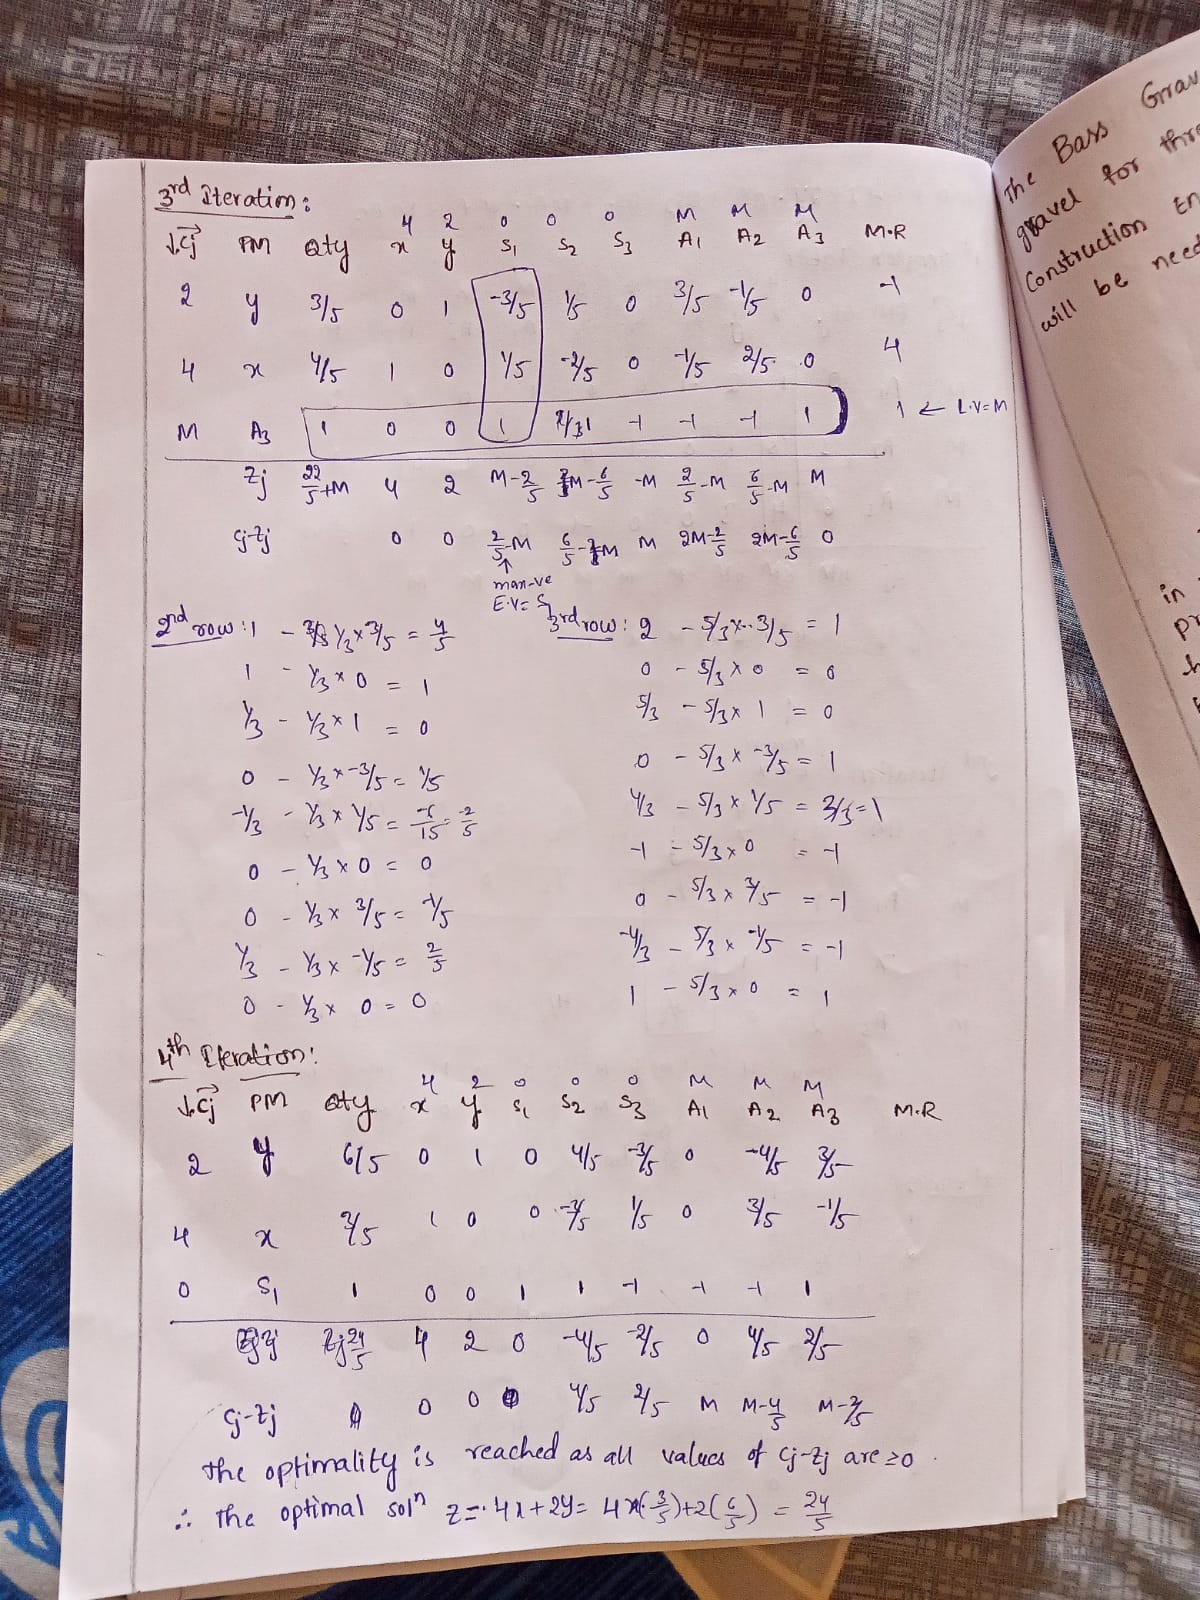 3rd Iteration:
4 2 0 0 0 M M M
↓Cj→ PM Qty x y S1 S2 S3 A1 A2 A3 M.R
2 y 3/5 0 1 -3/5 1/5 0 3/5 -1/5 0 -1
4 x 4/5 1 0 1/5 -2/5 0 -1/5 2/5 0 4
M A3 1 0 0 1 1 -1 -1 -1 1 1 ← L.V=M
Zj 22/5+M 4 2 M-2/5 M-6/5 -M 2/5-M 6/5-M M
Cj-Zj 0 0 2/5-M 6/5-M M 2M-2/5 2M-6/5 0
↑
max-ve
E.V= S1
2nd row: 1 - 1/3 x 3/5 = 4/5
1 - 1/3 x 0 = 1
1/3 - 1/3 x 1 = 0
0 - 1/3 x -3/5 = 1/5
-1/3 - 1/3 x 1/5 = -6/15 = -2/5
0 - 1/3 x 0 = 0
0 - 1/3 x 3/5 = -1/5
1/3 - 1/3 x -1/5 = 2/5
0 - 1/3 x 0 = 0
3rd row: 2 - 5/3 x 3/5 = 1
0 - 5/3 x 0 = 0
5/3 - 5/3 x 1 = 0
0 - 5/3 x -3/5 = 1
4/3 - 5/3 x 1/5 = 3/3 = 1
-1 - 5/3 x 0 = -1
0 - 5/3 x 3/5 = -1
-4/3 - 5/3 x -1/5 = -1
1 - 5/3 x 0 = 1
4th Iteration:
4 2 0 0 0 M M M
↓Cj→ PM Qty x y S1 S2 S3 A1 A2 A3 M.R
2 y 6/5 0 1 0 4/5 -3/5 0 -4/5 3/5
4 x 3/5 1 0 0 -3/5 1/5 0 3/5 -1/5
0 S1 1 0 0 1 1 -1 -1 -1 1
Zj 24/5 4 2 0 -4/5 -2/5 0 4/5 2/5
Cj-Zj 0 0 0 4/5 2/5 M M-4/5 M-2/5
The optimality is reached as all values of Cj-Zj are ≥0.
∴ The optimal soln Z= 4x+2y= 4x(3/5)+2(6/5) = 24/5
The Bass
gravel for
Construction
will be
in